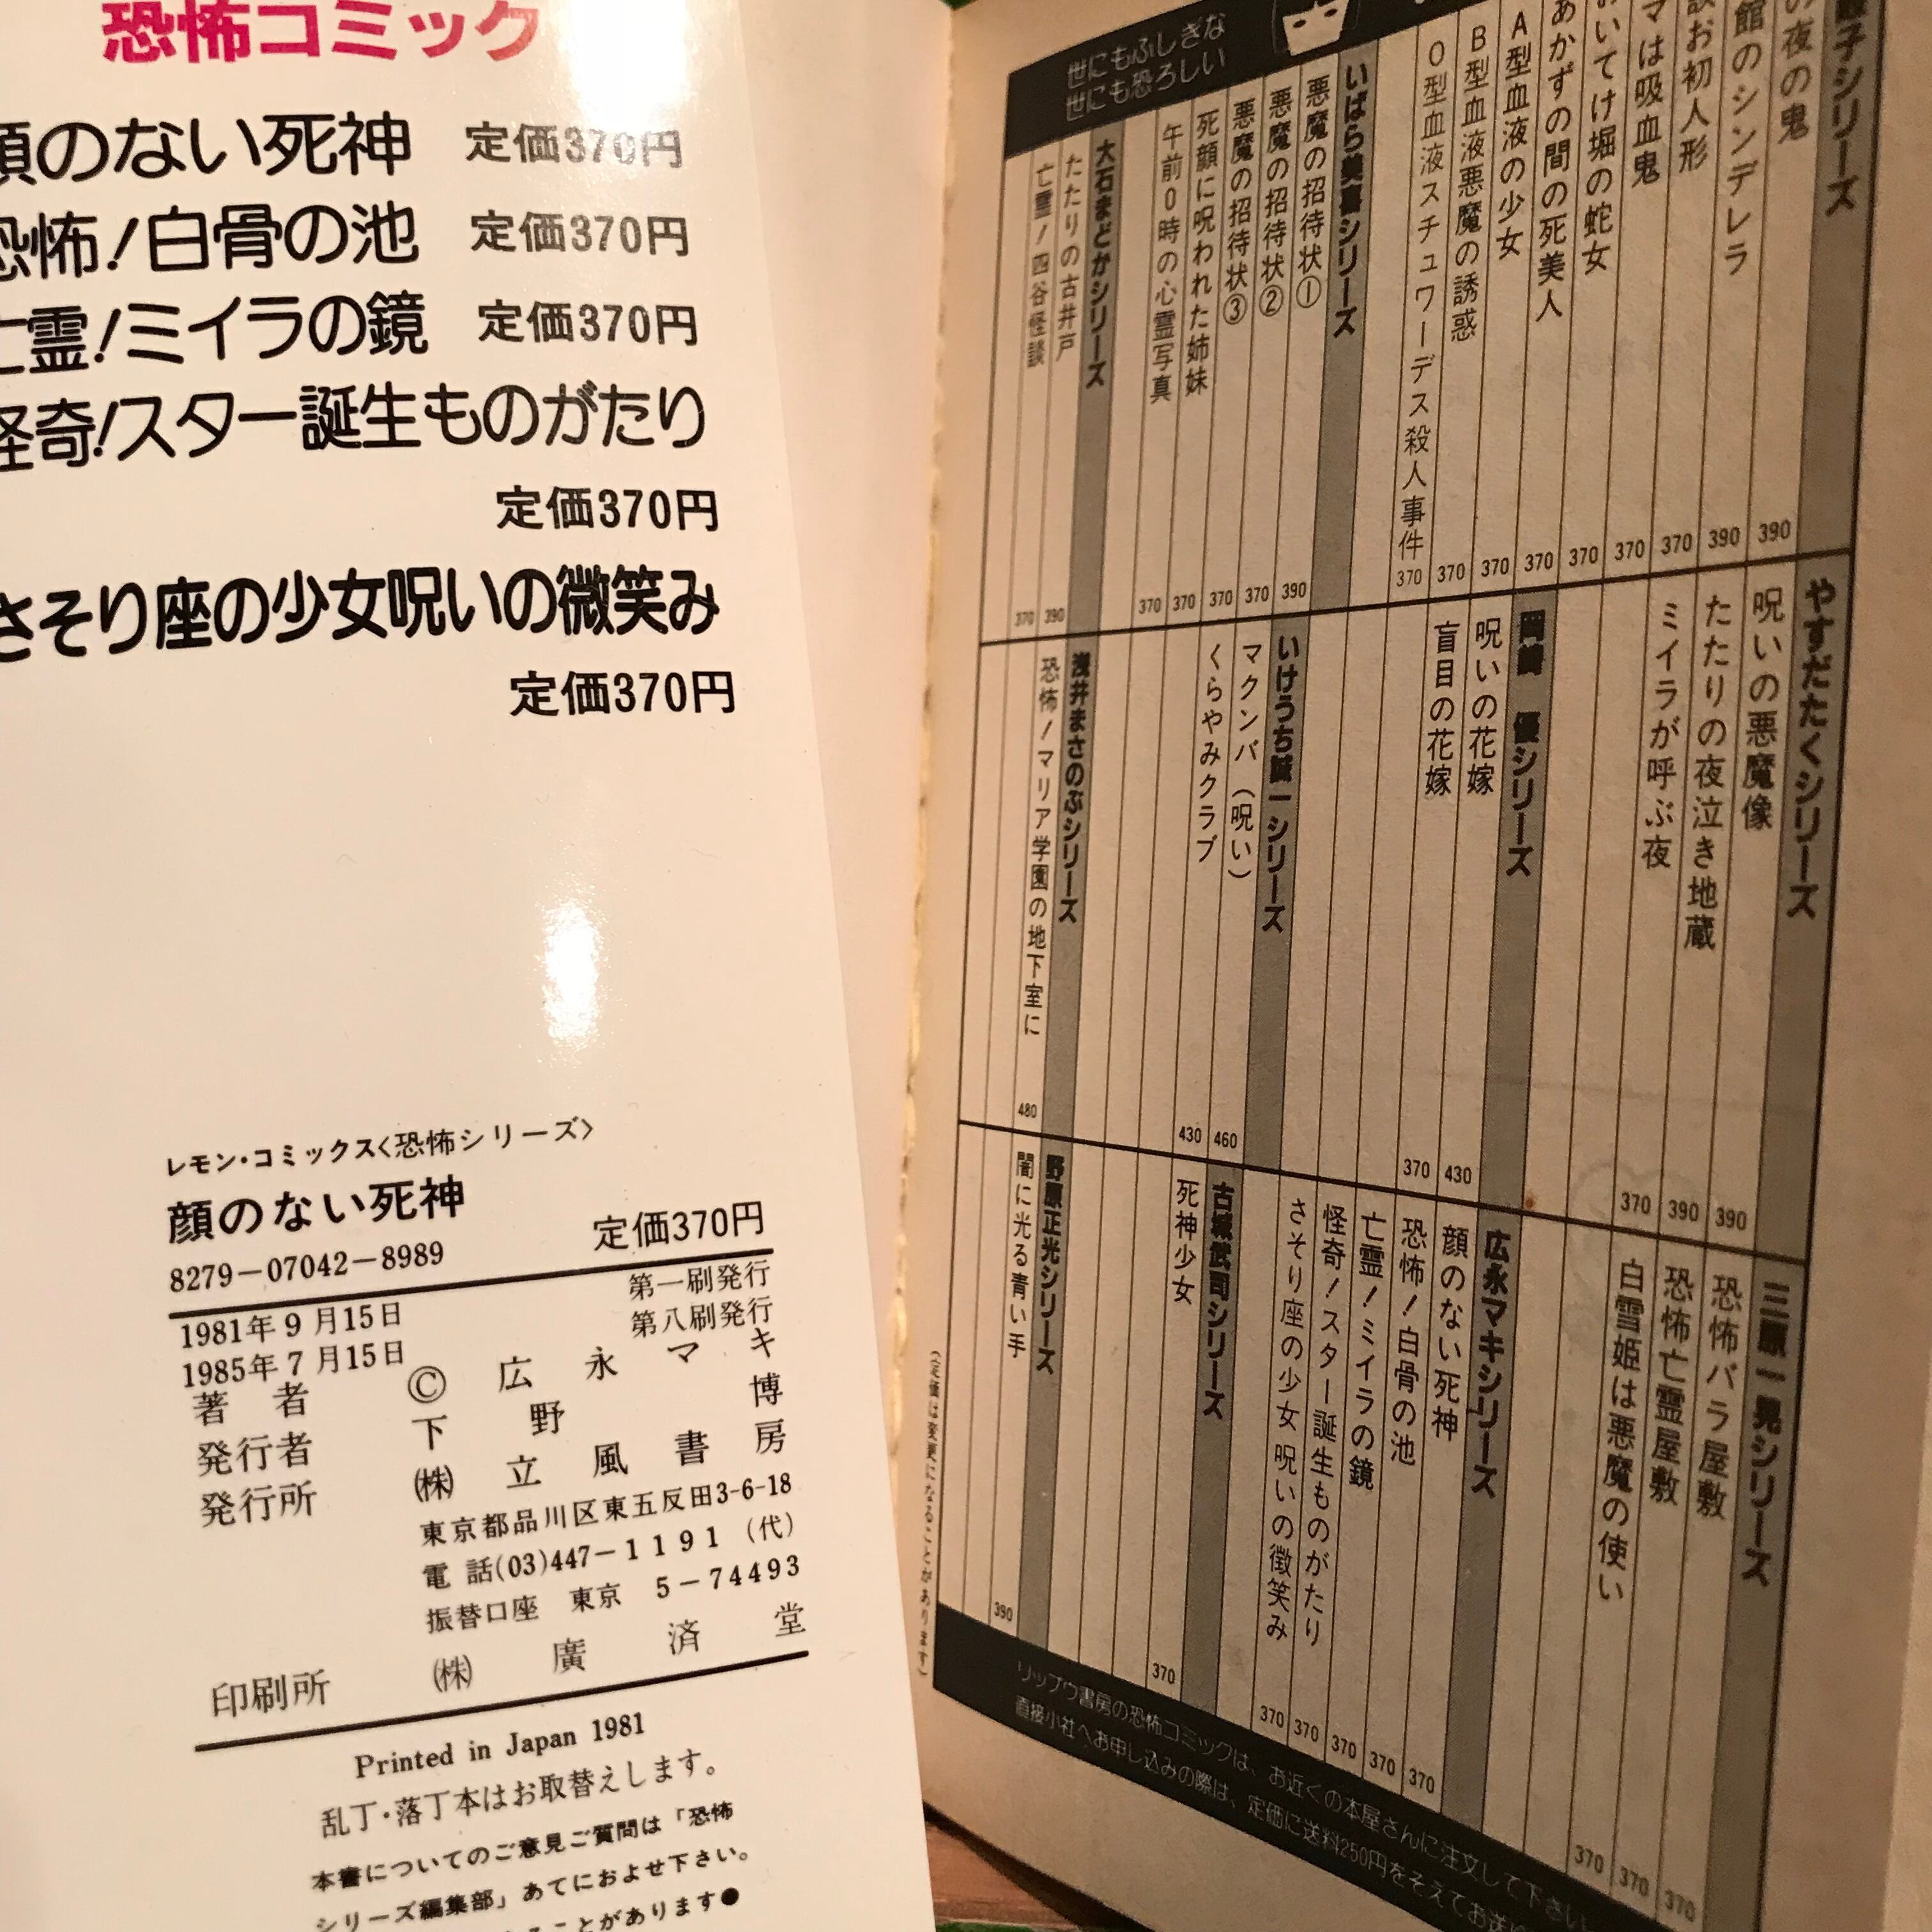 恐怖コミック
顔のない死神 定価370円
恐怖!白骨の池 定価370円
亡霊!ミイラの鏡 定価370円
怪奇!スター誕生ものがたり
定価370円
さそり座の少女呪いの微笑み
定価370円
レモン・コミックス<恐怖シリーズ>
顔のない死神
定価370円
8279-07042-8989
1981年9月15日 第一刷発行
1985年7月15日 第八刷発行
著者 © 広永マキ
発行者 下野 博
発行所 ㈱立風書房
東京都品川区東五反田3-6-18
電話(03)447-1191(代)
振替口座 東京 5-74493
印刷所 ㈱廣済堂
Printed in Japan 1981
乱丁・落丁本はお取替えします。
本書についてのご意見ご質問は「恐怖
シリーズ編集部」あてにおよせ下さい。
ることがあります●
子シリーズ
の夜の鬼 390
館のシンデレラ 390
お初人形 370
マは吸血鬼 370
おいてけ堀の蛇女 370
あかずの間の死美人 370
A型血液の少女 370
B型血液悪魔の誘惑 370
O型血液スチュワーデス殺人事件 370
いばら美喜シリーズ
悪魔の招待状① 390
悪魔の招待状② 370
悪魔の招待状③ 370
死顔に呪われた姉妹 370
午前0時の心霊写真 370
大石まどかシリーズ
たたりの古井戸 390
亡霊!四谷怪談 370
世にもふしぎな
世にも恐ろしい
やすだたくシリーズ
呪いの悪魔像 390
たたりの夜泣き地蔵 390
ミイラが呼ぶ夜 370
岡崎 優シリーズ
呪いの花嫁 430
盲目の花嫁 370
いけうち誠一シリーズ
マクンバ(呪い) 460
くらやみクラブ 430
浅井まさのぶシリーズ
恐怖!マリア学園の地下室に 480
三原一晃シリーズ
恐怖バラ屋敷 370
恐怖亡霊屋敷 370
白雪姫は悪魔の使い 370
広永マキシリーズ
顔のない死神 370
恐怖!白骨の池 370
亡霊!ミイラの鏡 370
怪奇!スター誕生ものがたり 370
さそり座の少女 呪いの微笑み 370
古城武司シリーズ
死神少女 370
野原正光シリーズ
闇に光る青い手 390
(定価は変更になることがあります)
リップウ書房の恐怖コミックは、お近くの本屋さんに注文して下さい。
直接小社へお申し込みの際は、定価に送料250円をそえてお送り